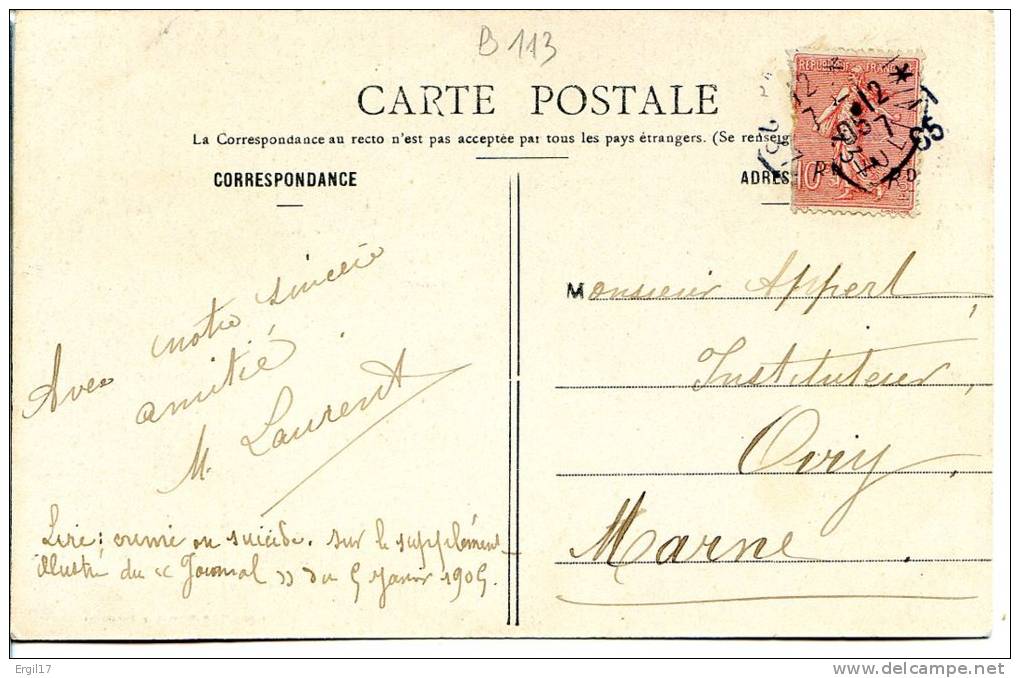 B 113
CARTE POSTALE
La Correspondance au recto n'est pas acceptée par tous les pays étrangers. (Se renseig
CORRESPONDANCE
ADRES
REPUBLIQUE FRANC
10
Avec notre sincère
amitié.
M. Laurent
Lire : crime ou suicide. sur le supplément
illustré du « Journal » du 5 Janvier 1905.
Monsieur Appert,
Instituteur,
Oiry,
Marne.
Ergil17
delcampe.net